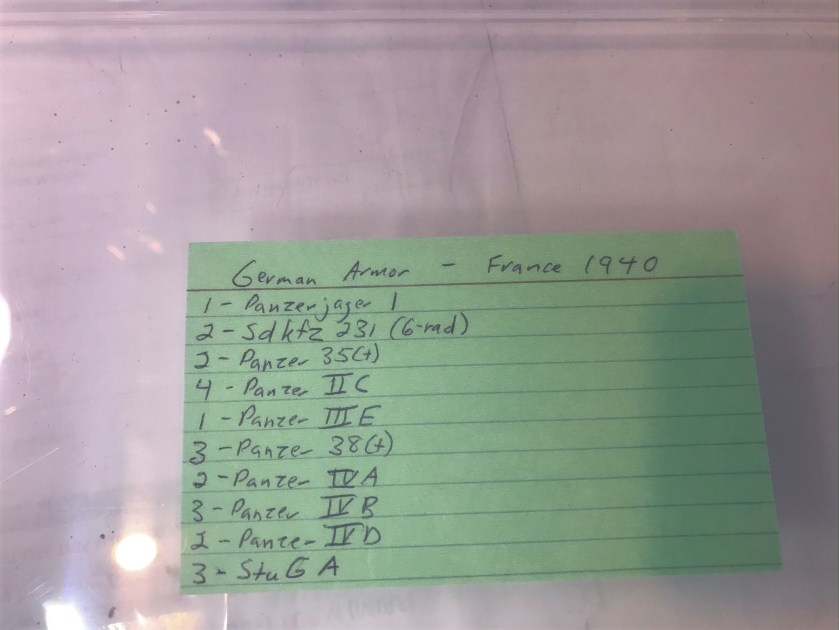 German Armor - France 1940
1 - Panzerjager 1
2 - Sdkfz 231 (6-rad)
2 - Panzer 35(t)
4 - Panzer II C
1 - Panzer III E
3 - Panzer 38(t)
2 - Panzer IV A
3 - Panzer IV B
2 - Panzer IV D
3 - StuG A